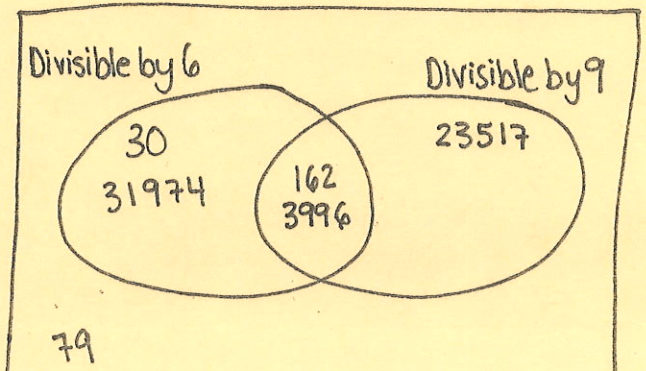 Divisible by 6
Divisible by 9
30
31974
162
3996
23517
79